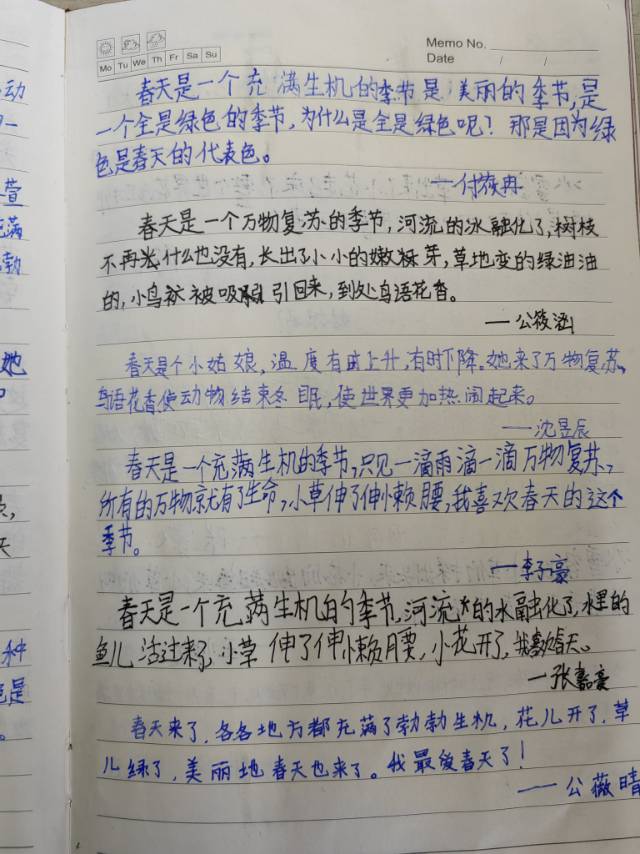 Memo No.
Mo Tu We Th Fr Sa Su
Date / /
春天是一个充满生机的季节是美丽的季节,是
一个全是绿色的季节,为什么是全是绿色呢?那是因为绿
色是春天的代表色。
——付筱冉
春天是一个万物复苏的季节,河流的冰融化了,树枝
不再光什么也没有,长出了小小的嫩芽,草地变的绿油油
的,小鸟被吸引回来,到处鸟语花香。
——公筱涵
春天是个小姑娘,温度有时上升,有时下降。她来了万物复苏,
鸟语花香使动物结束冬眠,使世界更加热闹起来。
——沈昱辰
春天是一个充满生机的季节,只见一滴雨滴一滴万物复苏,
所有的万物就有了生命,小草伸了伸懒腰,我喜欢春天的这个
季节。
——李子豪
春天是一个充满生机的季节,河流的水融化了,水里的
鱼儿活过来了,小草伸了伸懒腰,小花开了,我喜欢春天。
——张嘉豪
春天来了,各各地方都充满了勃勃生机,花儿开了,草
儿绿了,美丽地春天也来了。我最爱春天了!
——公薇晴
动
一
萱
充满
勃
她
,
天
种
色是
。